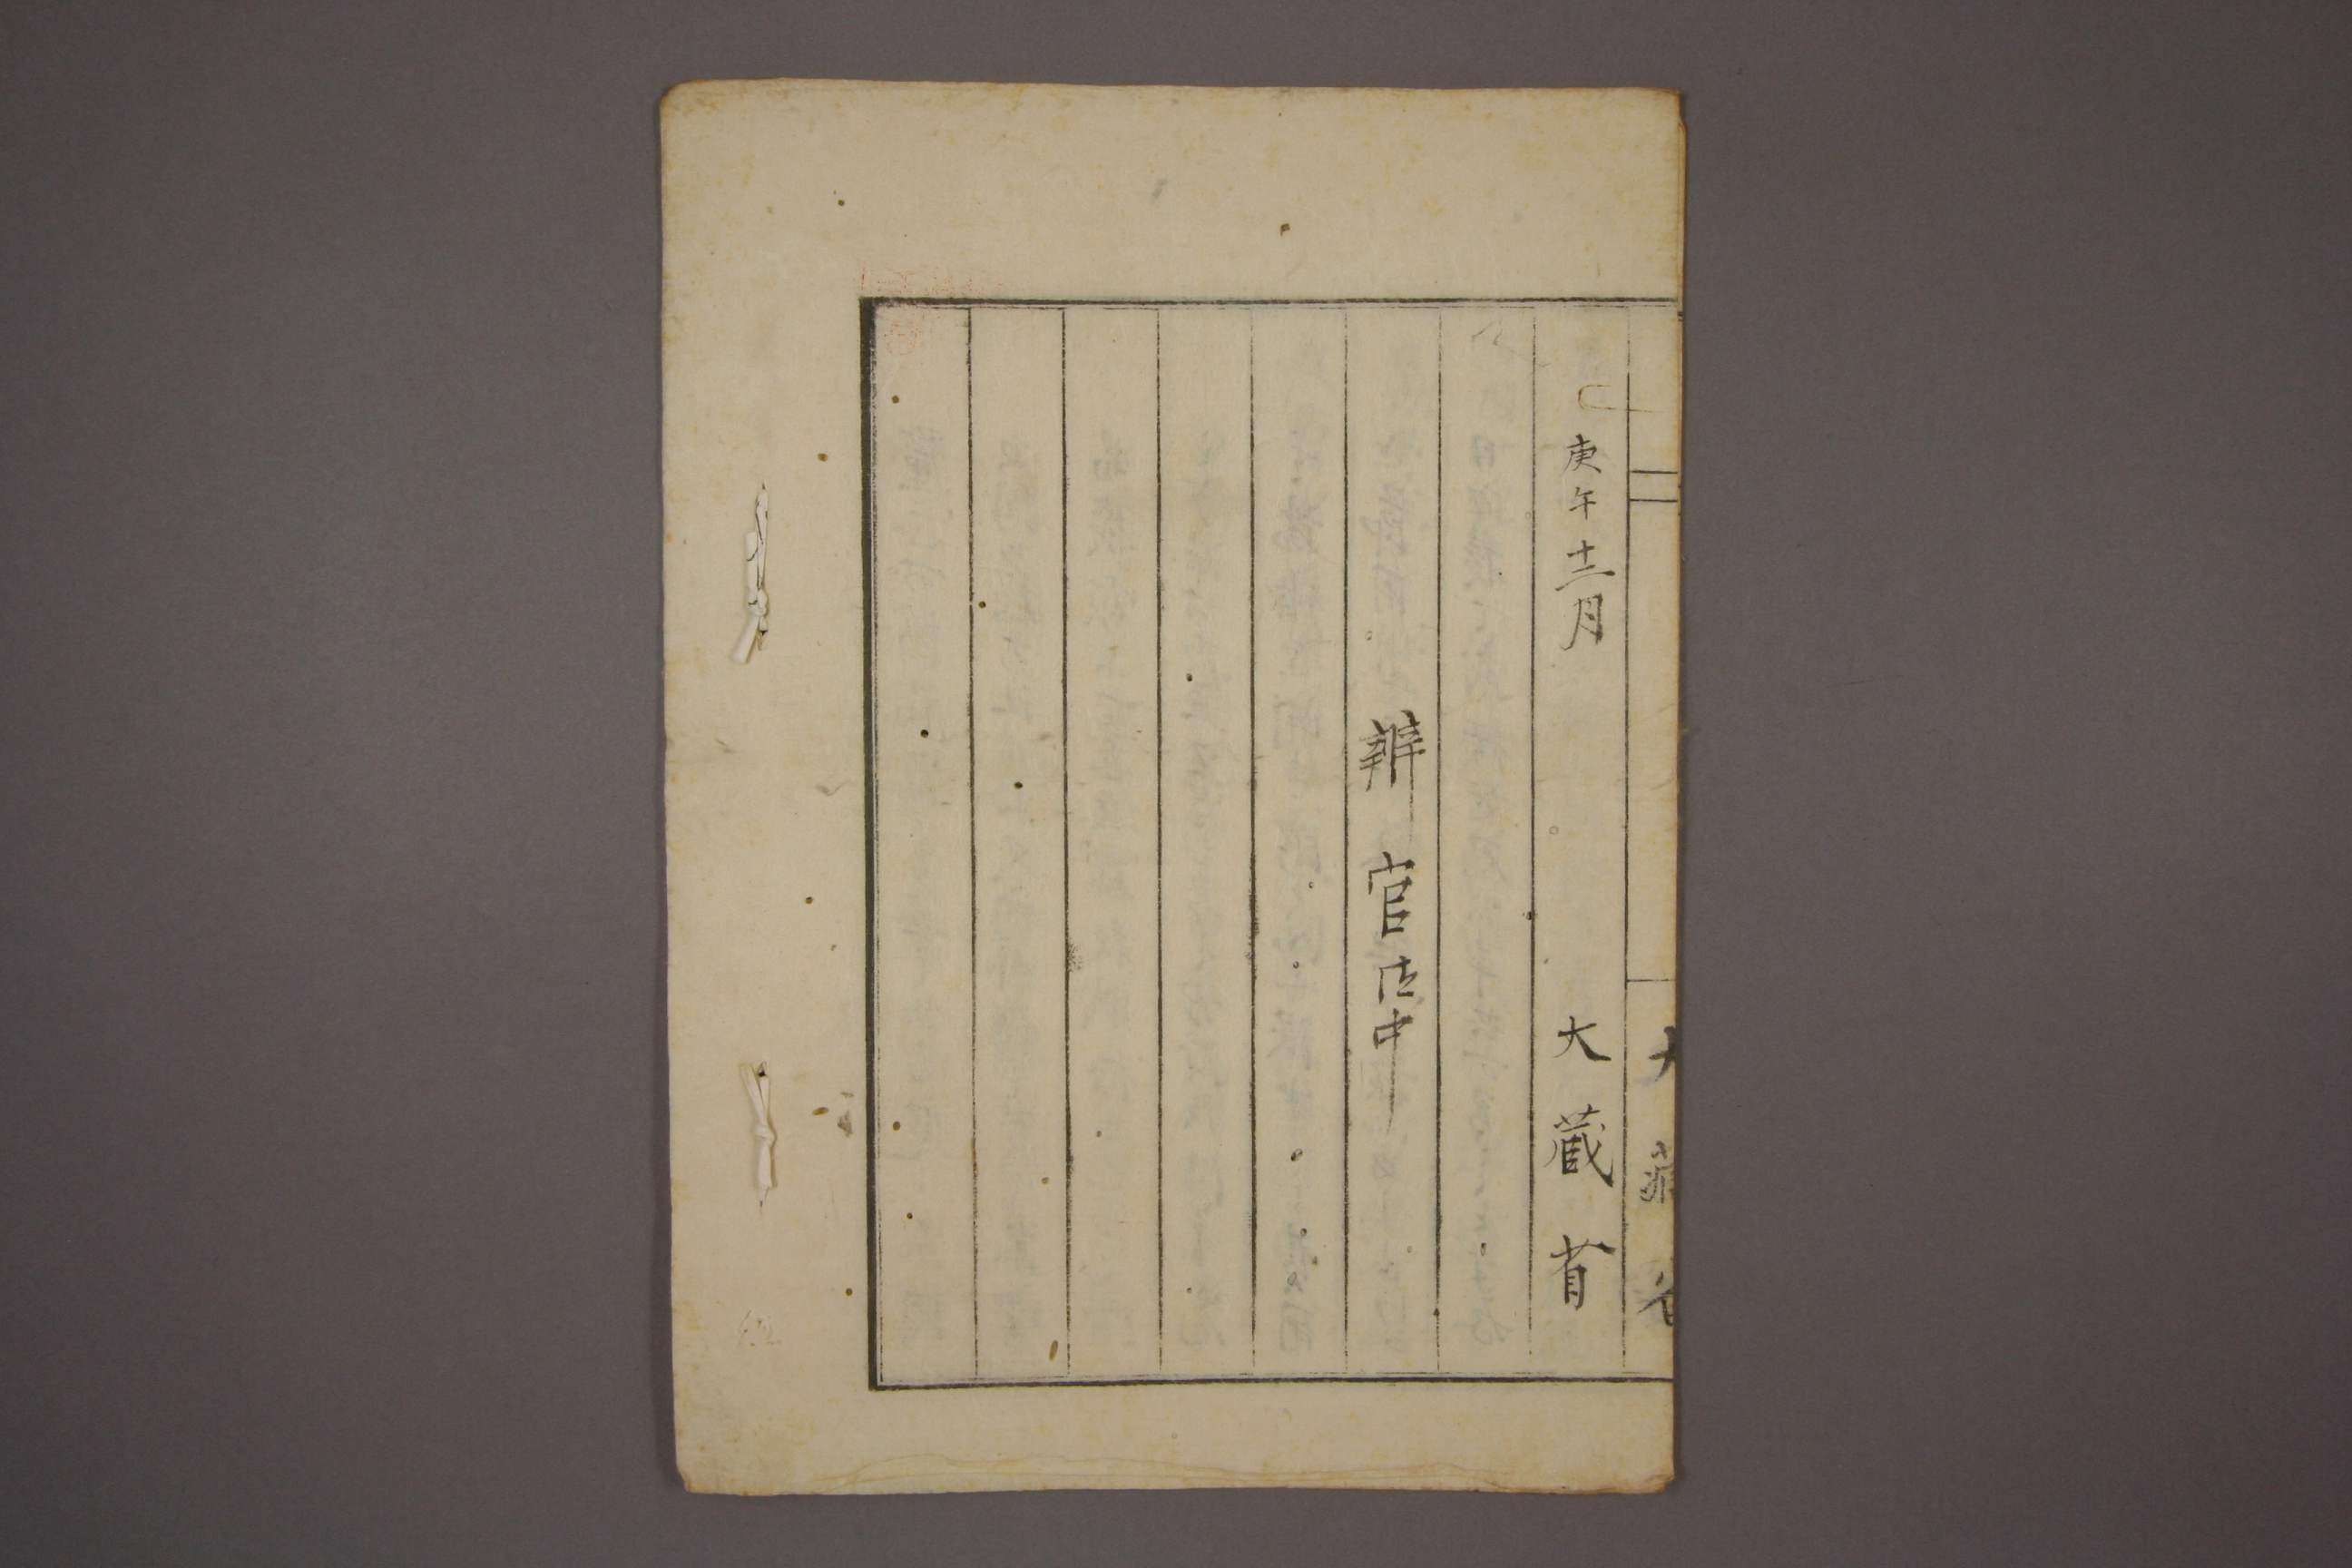 庚午十二月
大蔵省
辨官御中